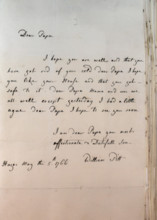 Dear Papa
I hope you are well, and that you
have got rid of your cold dear Papa I hope,
you like your House and that you got
safe to it dear Papa Mama and we are
all well except yesterday I had a little
dear Papa I hope to see you soon
I am dear Papa your most
affectionate & Dutifull Son
William Pitt
Hayes May the 1766